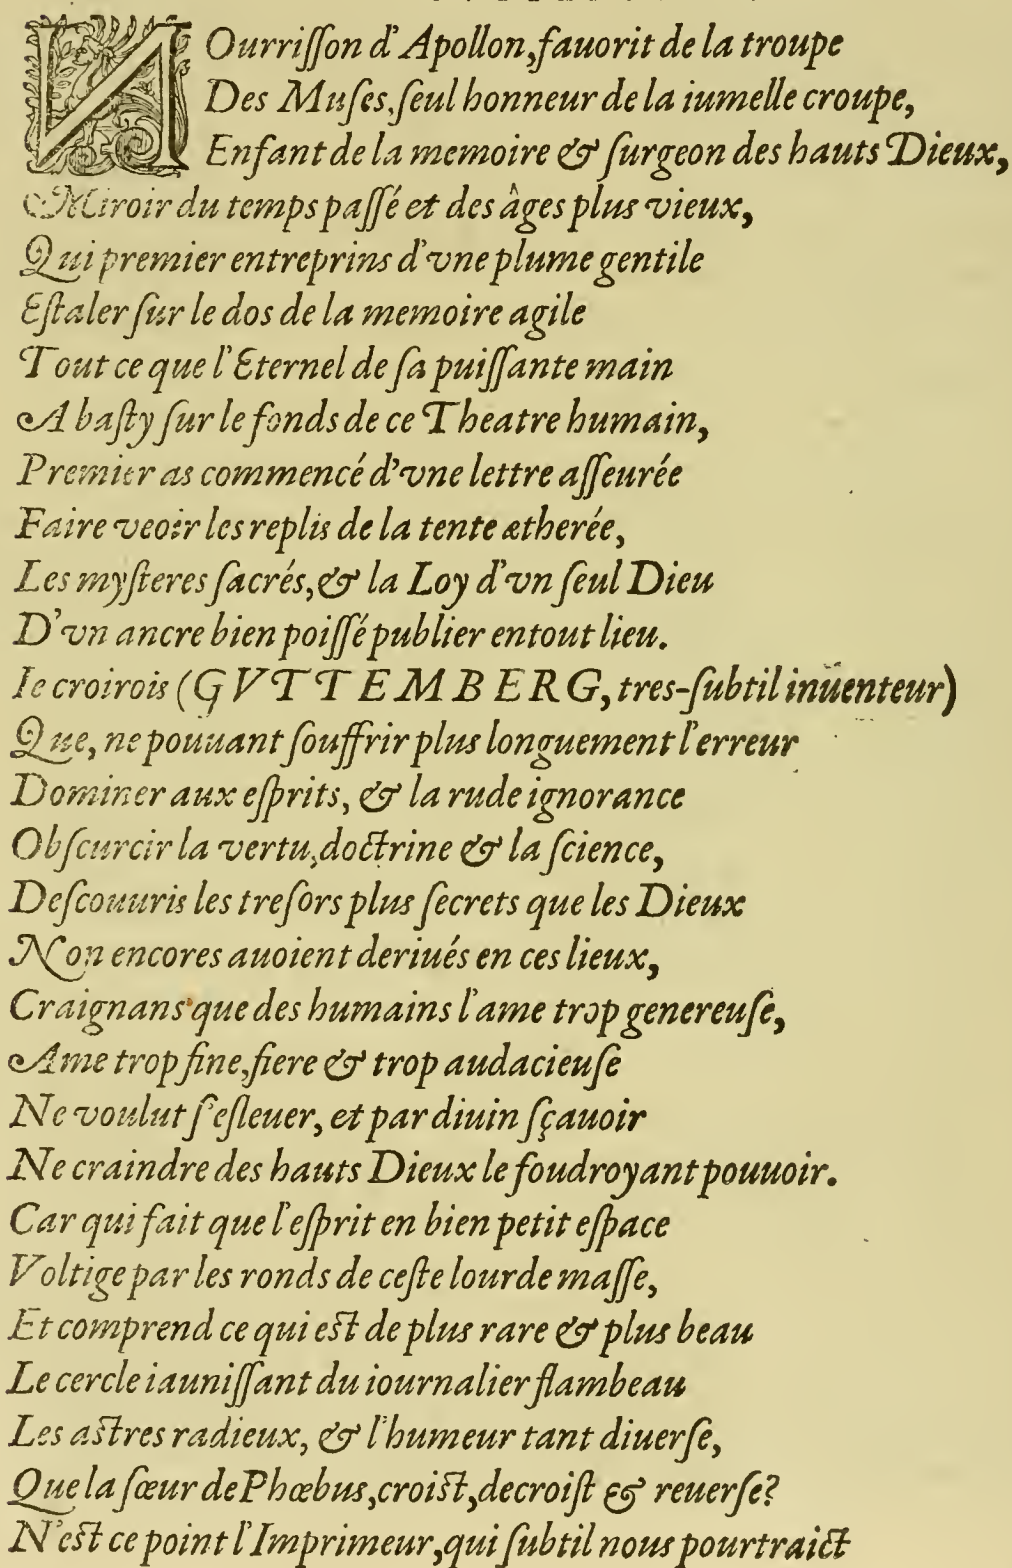 NOurriſſon d'Apollon, fauorit de la troupe
Des Muſes, ſeul honneur de la iumelle croupe,
Enfant de la memoire & ſurgeon des hauts Dieux,
Miroir du temps paſſé et des âges plus vieux,
Qui premier entreprins d'vne plume gentile
Eſtaler ſur le dos de la memoire agile
Tout ce que l'Eternel de ſa puiſſante main
A baſty ſur le fonds de ce Theatre humain,
Premier as commencé d'vne lettre aſſeurée
Faire veoir les replis de la tente ætherée,
Les myſteres ſacrés, & la Loy d'vn ſeul Dieu
D'vn ancre bien poiſſé publier en tout lieu.
Ie croirois (GVTTEMBERG, tres-ſubtil inuenteur)
Que, ne pouuant ſouffrir plus longuement l'erreur
Dominer aux eſprits, & la rude ignorance
Obſcurcir la vertu, doctrine & la ſcience,
Deſcouuris les treſors plus ſecrets que les Dieux
Non encores auoient deriués en ces lieux,
Craignans que des humains l'ame trop genereuſe,
Ame trop fine, fiere & trop audacieuſe
Ne voulut ſ'eſleuer, et par diuin ſçauoir
Ne craindre des hauts Dieux le foudroyant pouuoir.
Car qui fait que l'eſprit en bien petit eſpace
Voltige par les ronds de ceſte lourde maſſe,
Et comprend ce qui eſt de plus rare & plus beau
Le cercle iauniſſant du iournalier flambeau
Les aſtres radieux, & l'humeur tant diuerſe,
Que la ſœur de Phœbus, croiſt, decroiſt & reuerſe?
N'eſt ce point l'Imprimeur, qui ſubtil nous pourtraict